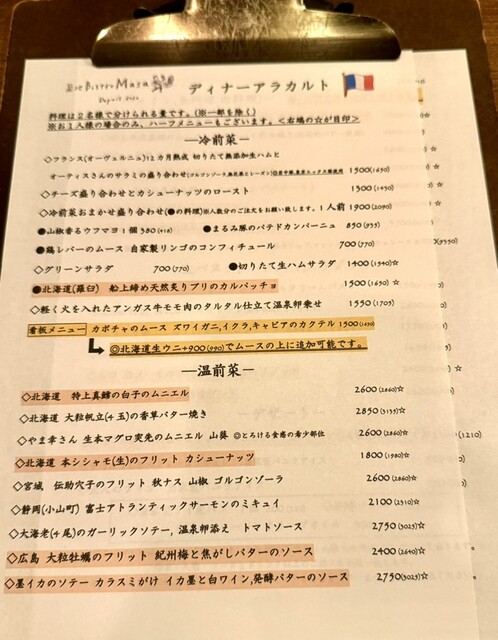 Bistro Masa
Depuis
ディナーアラカルト
料理は2名様で分けられる量です。(※一部を除く)
※お1人様の場合のみ、ハーフメニューもございます。<右端の☆が目印>
―冷前菜―
◇フランス(オーヴェルニュ)12カ月熟成 切りたて無添加生ハムと
オーティスさんのサラミの盛り合わせ 1500(1650)
◇チーズ盛り合わせとカシューナッツのロースト 1300(1430)
◇冷前菜おまかせ盛り合わせ(●の料理)※人数分のご注文をお願い致します。1人前 1900(2090)
●山椒香るウフマヨ 1個 380(418) ●まるみ豚のパテドカンパーニュ 850(935)
●鶏レバーのムース 自家製リンゴのコンフィチュール 700(770)
◇グリーンサラダ 700(770) ●切りたて生ハムサラダ 1400(1540)☆
●北海道(羅臼) 船上締め天然炙りブリのカルパッチョ 1500(1650)☆
◇軽く火を入れたアンガス牛モモ肉のタルタル仕立て温泉卵乗せ 1550(1705)
看板メニュー カボチャのムース ズワイガニ,イクラ,キャビアのカクテル 1300(1430)
◎北海道生ウニ+900(990)でムースの上に追加可能です。
―温前菜―
◇北海道 特上真鱈の白子のムニエル 2600(2860)☆
◇北海道 大粒帆立(4玉)の香草バター焼き 2850(3135)☆
◇やま幸さん 生本マグロ突先のムニエル 山葵 ◎とろける食感の希少部位 2600(2860)☆
◇北海道 本シシャモ(生)のフリット カシューナッツ 1800(1980)☆
◇宮城 伝助穴子のフリット 秋ナス 山椒 ゴルゴンゾーラ 2600(2860)☆
◇静岡(小山町) 富士アトランティックサーモンのミキュイ 2100(2310)☆
◇大海老(4尾)のガーリックソテー, 温泉卵添え トマトソース 2750(3025)☆
◇広島 大粒牡蠣のフリット 紀州梅と焦がしバターのソース 2400(2640)☆
◇墨イカのソテー カラスミがけ イカ墨と白ワイン,発酵バターのソース 2750(3025)☆